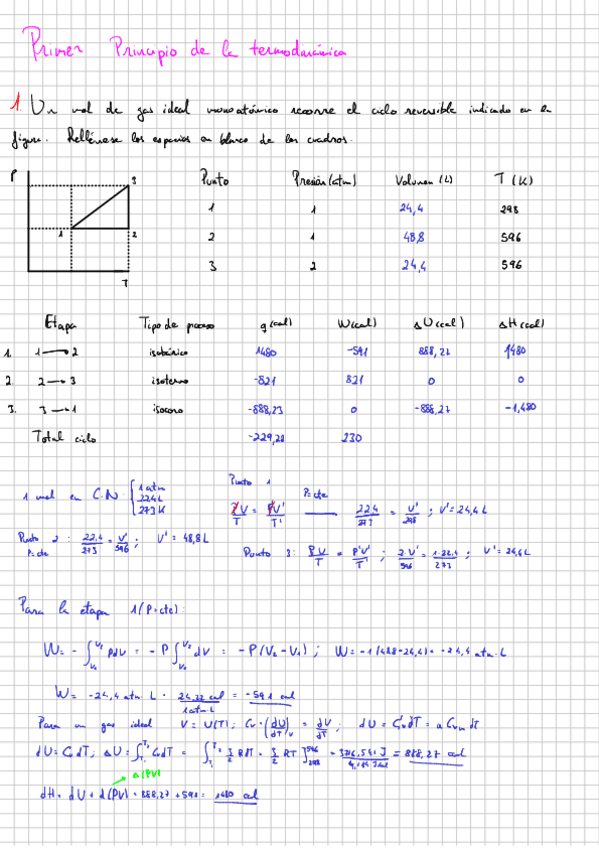 Primer Principio de la termodinámica
1. Un mol de gas ideal monoatómico recorre el ciclo reversible indicado en la
figura. Rellénese los espacios en blanco de los cuadros.
P
3
1
2
T
Punto Presión (atm) Volumen (L) T (K)
1 1 24,4 298
2 1 48,8 596
3 2 24,4 596
Etapa Tipo de proceso q (cal) W (cal) ΔU (cal) ΔH (cal)
1. 1 → 2 isobárico 1480 -591 888,27 1480
2. 2 → 3 isotermo -821 821 0 0
3. 3 → 1 isocoro -888,23 0 -888,27 -1,480
Total ciclo -229,28 230
1 mol en C.N. { 1 atm 22,4L 273 K
Punto 1
PV/T = P'V'/T' P=cte 22,4/273 = V'/298 ; V' = 24,4 L
Punto 2 : 22,4/273 = V'/596 ; V' = 48,8 L
P=cte
Punto 3: PV/T = P'V'/T' ; 2·V'/596 = 1·22,4/273 ; V' = 24,4 L
Para la etapa 1 (P=cte):
W = - ∫ PdV = - P ∫ dV = - P (V₂ - V₁) ; W = -1 (48,8 - 24,4) = -24,4 atm · L
W = -24,4 atm · L · 24,22 cal / 1 atm · L = -591 cal
Para un gas ideal V = U(T) ; Cv = (dU/dT)v = dU/dT ; dU = CvdT = n Cvm dT
dU = CvdT ; ΔU = ∫ CvdT = ∫ 3/2 RdT = 3/2 RT ]⁵⁹⁶₂₉₈ = = 888,27 cal
Δ(PV)
dH = dU + d(PV) = 888,27 + 591 = 1480 cal